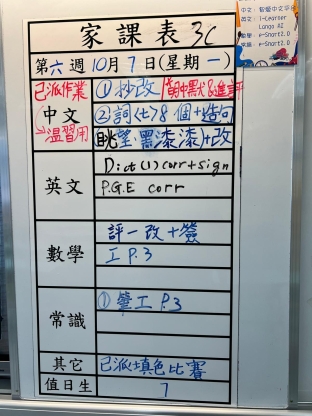 家課表 3C
第六週 10月7日(星期一)
已派作業
中文
溫習用
①抄改
②詞(七)8個+造句
(眺望、黑漆漆)+改
英文
Dict(1) corr+sign
P.G.E corr
數學
評一改+簽
工 P.3
常識
① 筆工 P.3
其它
已派填色比賽
值日生
7
中文:
英文: i-Learner
Lango AI
數學: e-Smart2.0
常識: e-Smart2.0